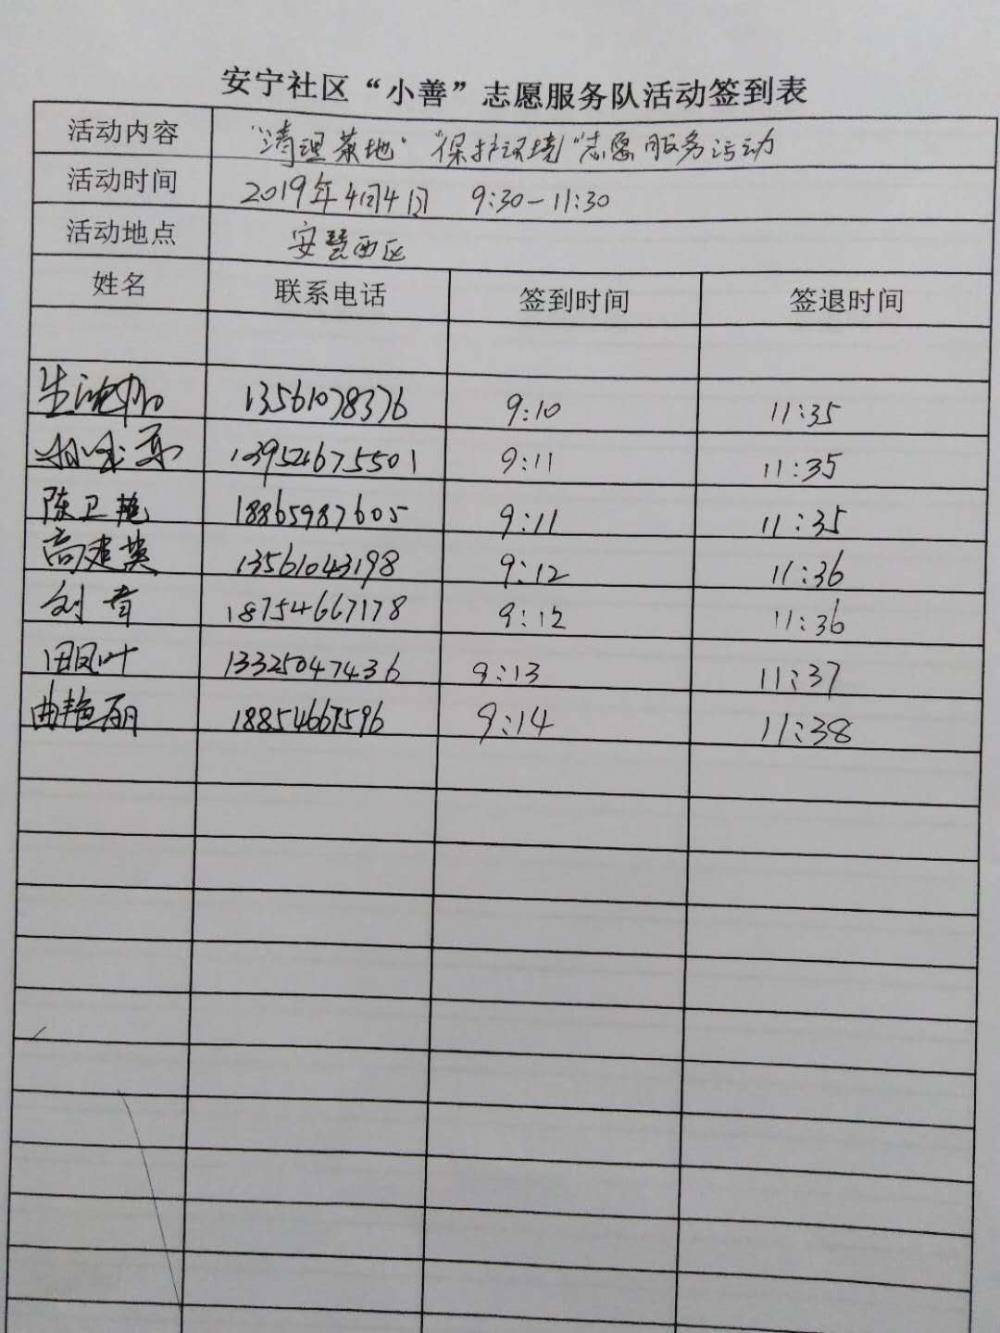 安宁社区“小善”志愿服务队活动签到表
活动内容 “清理菜地”“保护环境”志愿服务活动
活动时间 2019年4月4日 9:30-11:30
活动地点 安慧西区
姓名 联系电话 签到时间 签退时间
13561078376 9:10 11:35
13954675501 9:11 11:35
陈卫艳 18865987605 9:11 11:35
高建英 13561043198 9:12 11:36
刘青 18754667178 9:12 11:36
田凤叶 13325047436 9:13 11:37
曲艳丽 18854667596 9:14 11:38